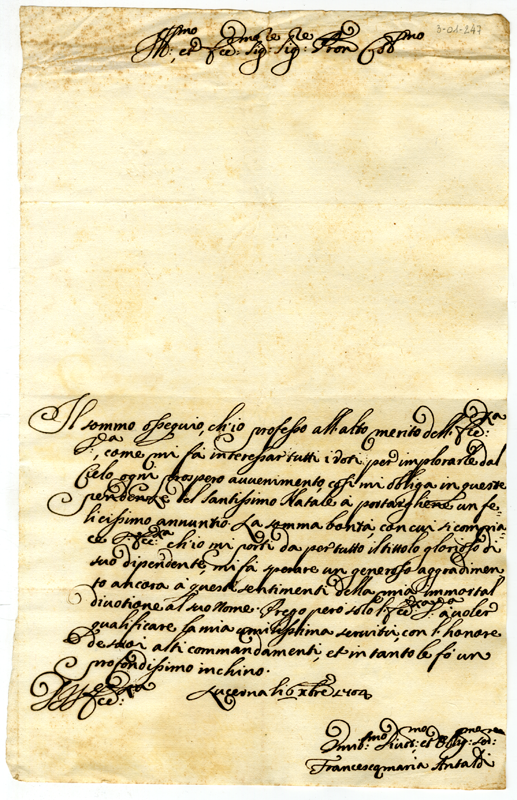 3-01-247
Ill:mo et Ecc:mo Sig:re Sig:re Pron Col:mo
Il sommo ossequio, ch'io professo all'alto merito dell'Ecc:za
V:ra, come mi fà interessar tutti i voti per implorarle dal
Cielo ogni prospero auuenimento, così mi obliga in queste
pendenze del Santissimo Natale à portarghene un fe-
licissimo annuntio. La somma bontà, con cui si compia-
ce V:ra Ecc:za ch'io mi porti da per tutto il tittolo glorioso di
suo dipendente, mi fà sperare un generoso aggradimen-
to ancora à questi sentimenti della mia immortal
diuotione al suo Nome. Prego però solo l'Ecc:za V:ra à uoler
qualificare la mia humilissima seruitù con l'honore
de suoi alti commandamenti, et in tanto le fò un
profondissimo inchino.
Di V:ra Ecc:za
Lucerna li 6 Xbre 1704
Humil:mo Diuot:mo et Oblig:mo Ser:re
Francesco maria Antaldi